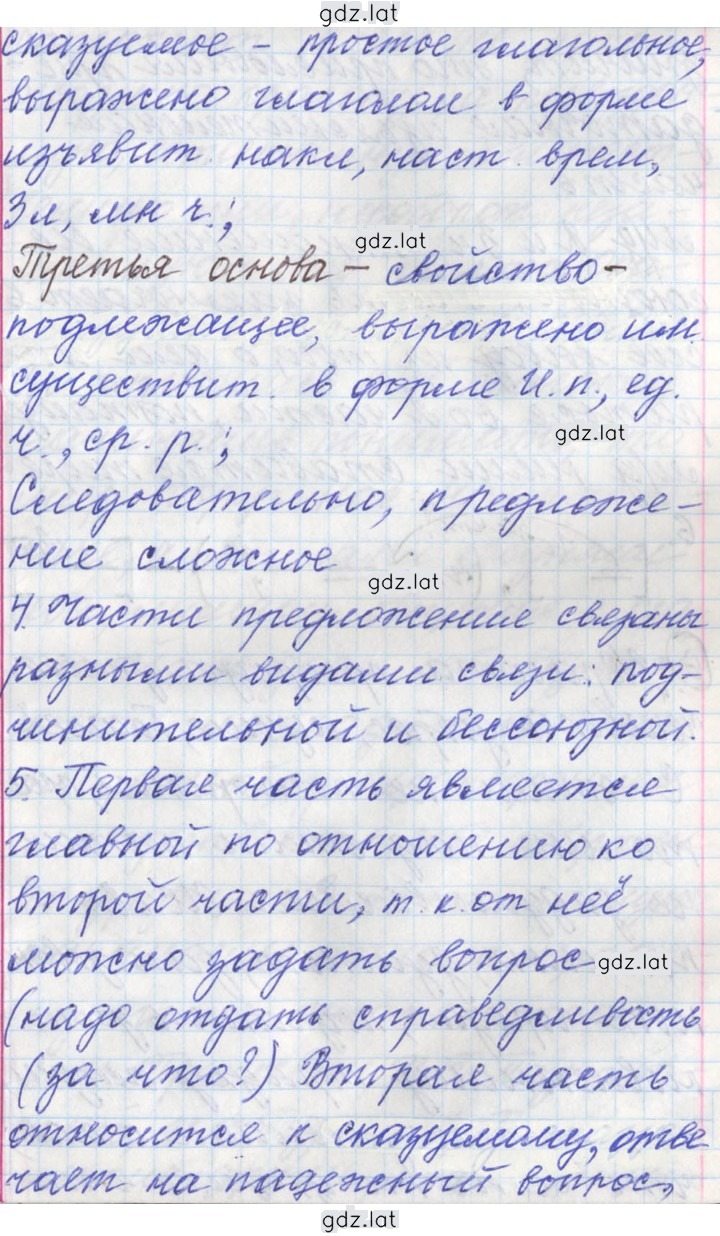 gdz.lat
сказуемое – простое глагольное,
выражено глаголом в форме
изъявит. накл, наст. врем,
3л, мн ч.;
gdz.lat
Третья основа – свойство –
подлежащее, выражено им.
существит. в форме И.п., ед.
gdz.lat
ч., ср. р.;
Следовательно, предложе-
ние сложное
gdz.lat
4. Части предложения связаны
разными видами связи: под-
чинительной и бессоюзной.
5. Первая часть является
главной по отношению ко
второй части, т.к. от неё
можно задать вопрос
gdz.lat
(надо отдать справедливость
(за что?) Вторая часть
относится к сказуемому, отве
чает на падежный вопрос,
gdz.lat